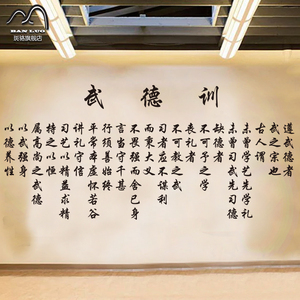 BAN LUO
武德训
遵武德者
武之宗也
古人谓
未曾学艺先学礼
未曾习武先习德
缺德者
不可予之学
丧礼者
不可教之武
习者应不谋利
而秉大义
不畏强而舍己身
言当守
行须善始终
平常本虚怀若谷
讲礼守信
习艺以精益求精
持之以恒
属高尚之武德
以武强身
以德养性